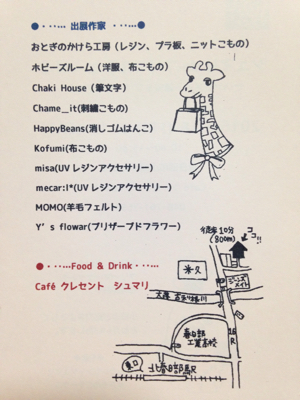 ●・・・… 出展作家 …・・・●
おとぎのかけら工房（レジン、プラ板、ニットこもの）
ホビーズルーム（洋服、布こもの）
Chaki House（筆文字）
Chame＿it(刺繍こもの)
HappyBeans(消しゴムはんこ)
Kofumi(布こもの)
misa(UVレジンアクセサリー)
mecar:l*(UVレジンアクセサリー)
MOMO(羊毛フェルト)
Y’s flowar(プリザーブドフラワー)
●・・・…Food & Drink・・・…
Café クレセント シュマリ
徒歩10分
(800m)
ココ!!
米久
春日部
工業高校
16
R
東口
北春日部駅